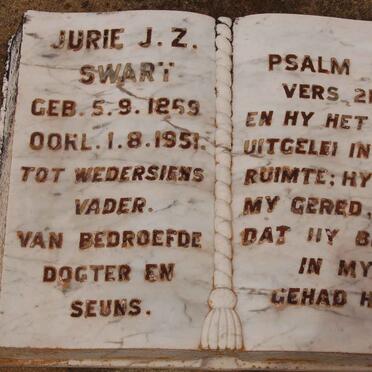 JURIE J. Z.
SWART
GEB. 5.9.1869
OORL. 1.8.1951.
TOT WEDERSIENS
VADER.
VAN BEDROEFDE
DOGTER EN
SEUNS.
PSALM
VERS 2
EN HY HET
UITGELEI IN
RUIMTE; HY
MY GERED,
DAT HY B
IN MY
GEHAD H